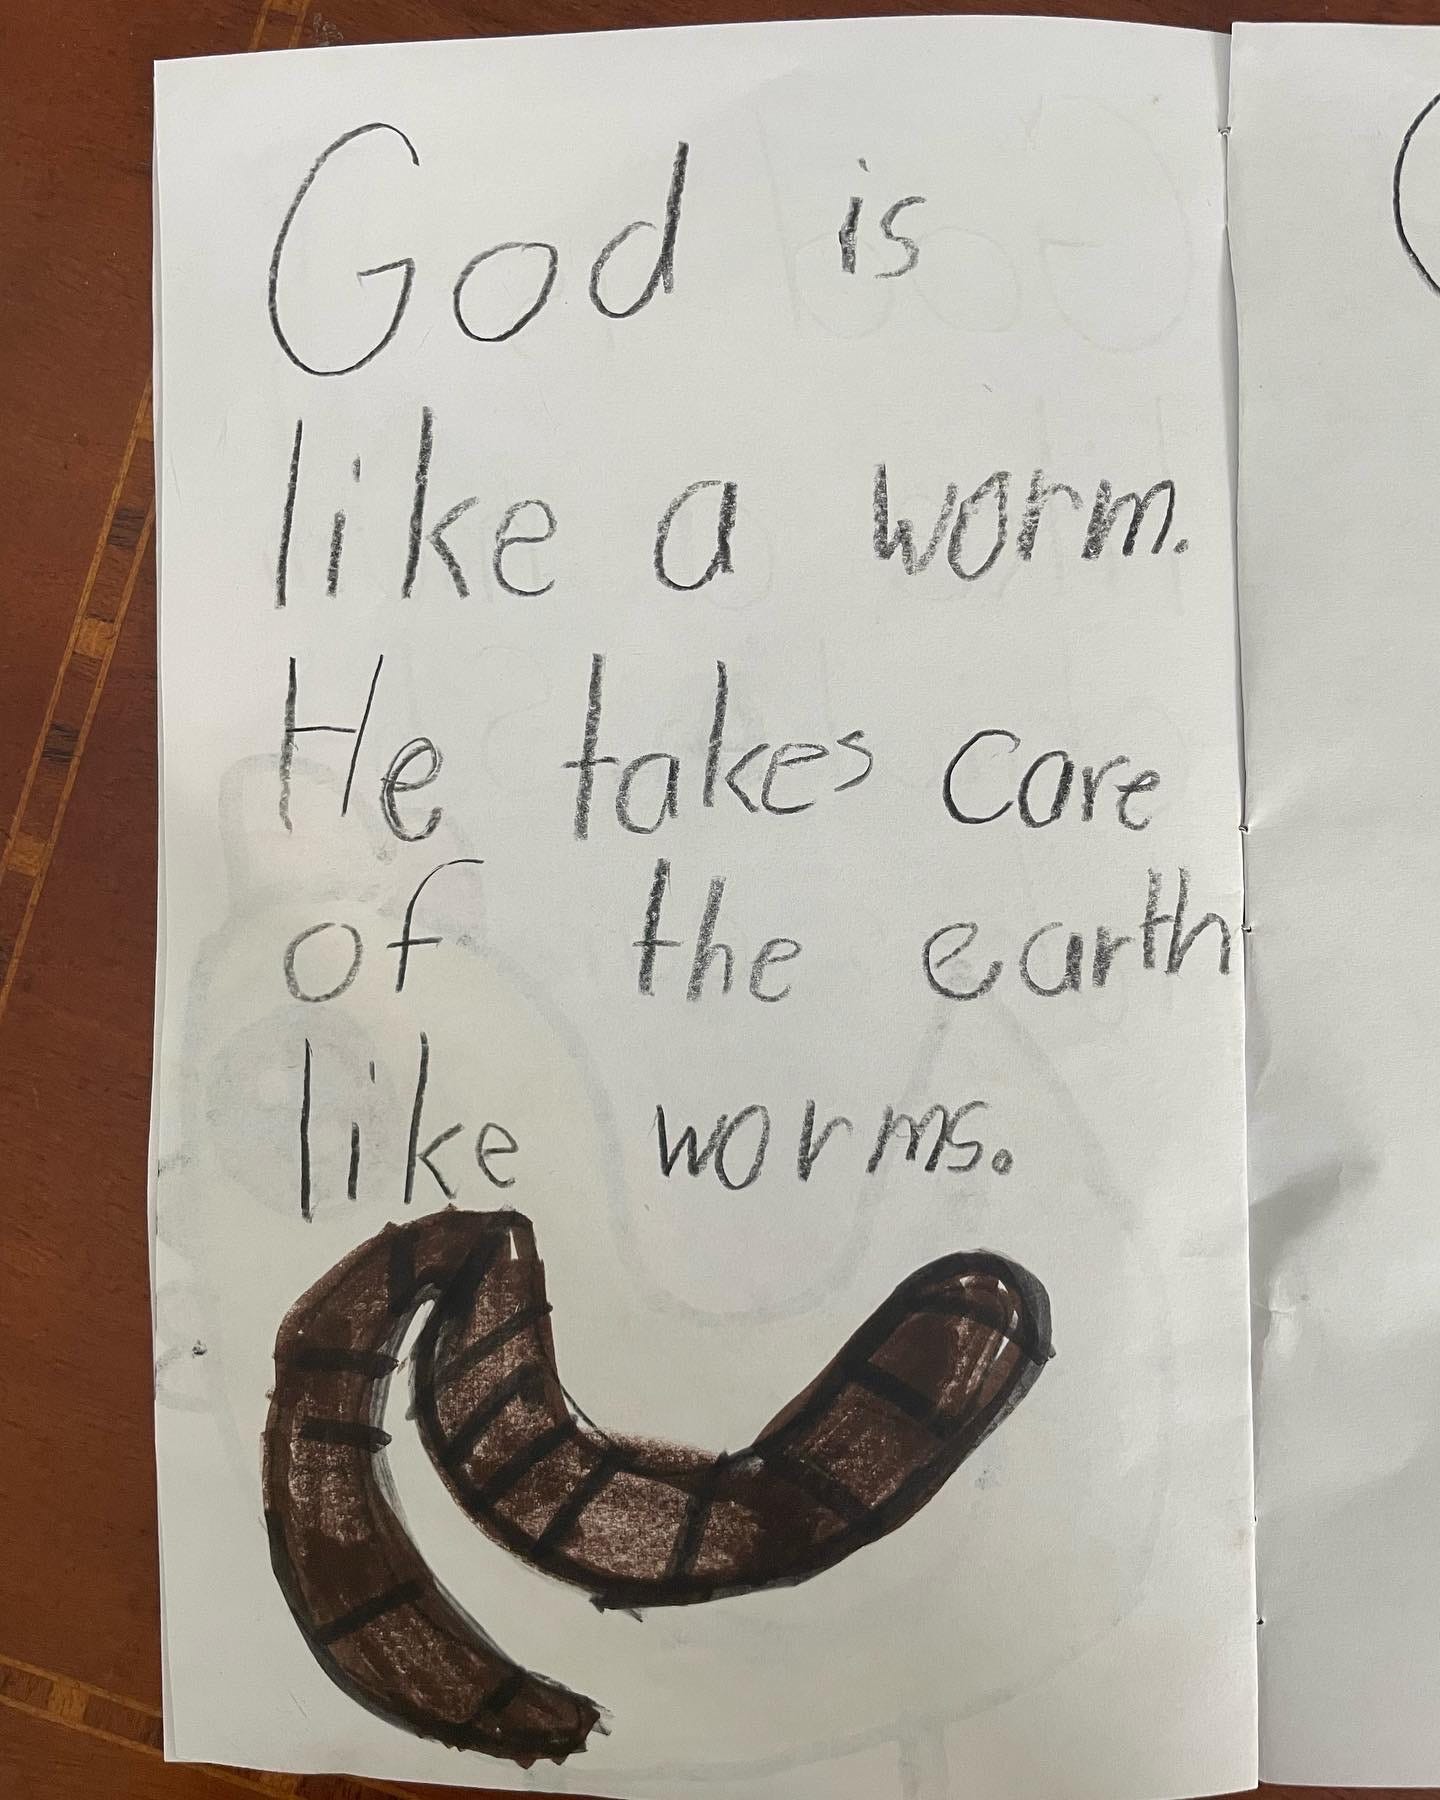 God is
like a worm.
He takes care
of the earth
like worms.